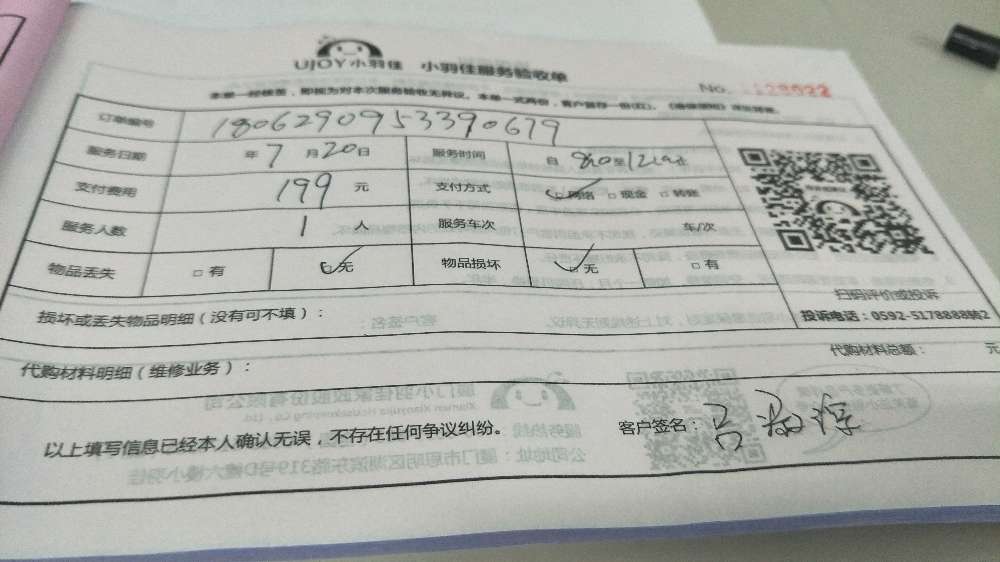 UJOY小羽佳 小羽佳服务验收单
No. 1129922
本单一经核签，即视为对本次服务验收无异议。本单一式两份，客户留存一份(红)。
订单编号 1806290953390679
服务日期 年 7 月 20 日 服务时间 自 至
支付费用 199 元 支付方式 网络 □ 现金 □ 转账
服务人数 1 人 服务车次 车/次
物品丢失 □ 有 ☑ 无 物品损坏 ☑ 无 □ 有
扫码评价或投诉
投诉电话：0592-5178888转2
损坏或丢失物品明细（没有可不填）：
代购材料明细（维修业务）： 代购材料总额： 元
以上填写信息已经本人确认无误，不存在任何争议纠纷。 客户签名：吕